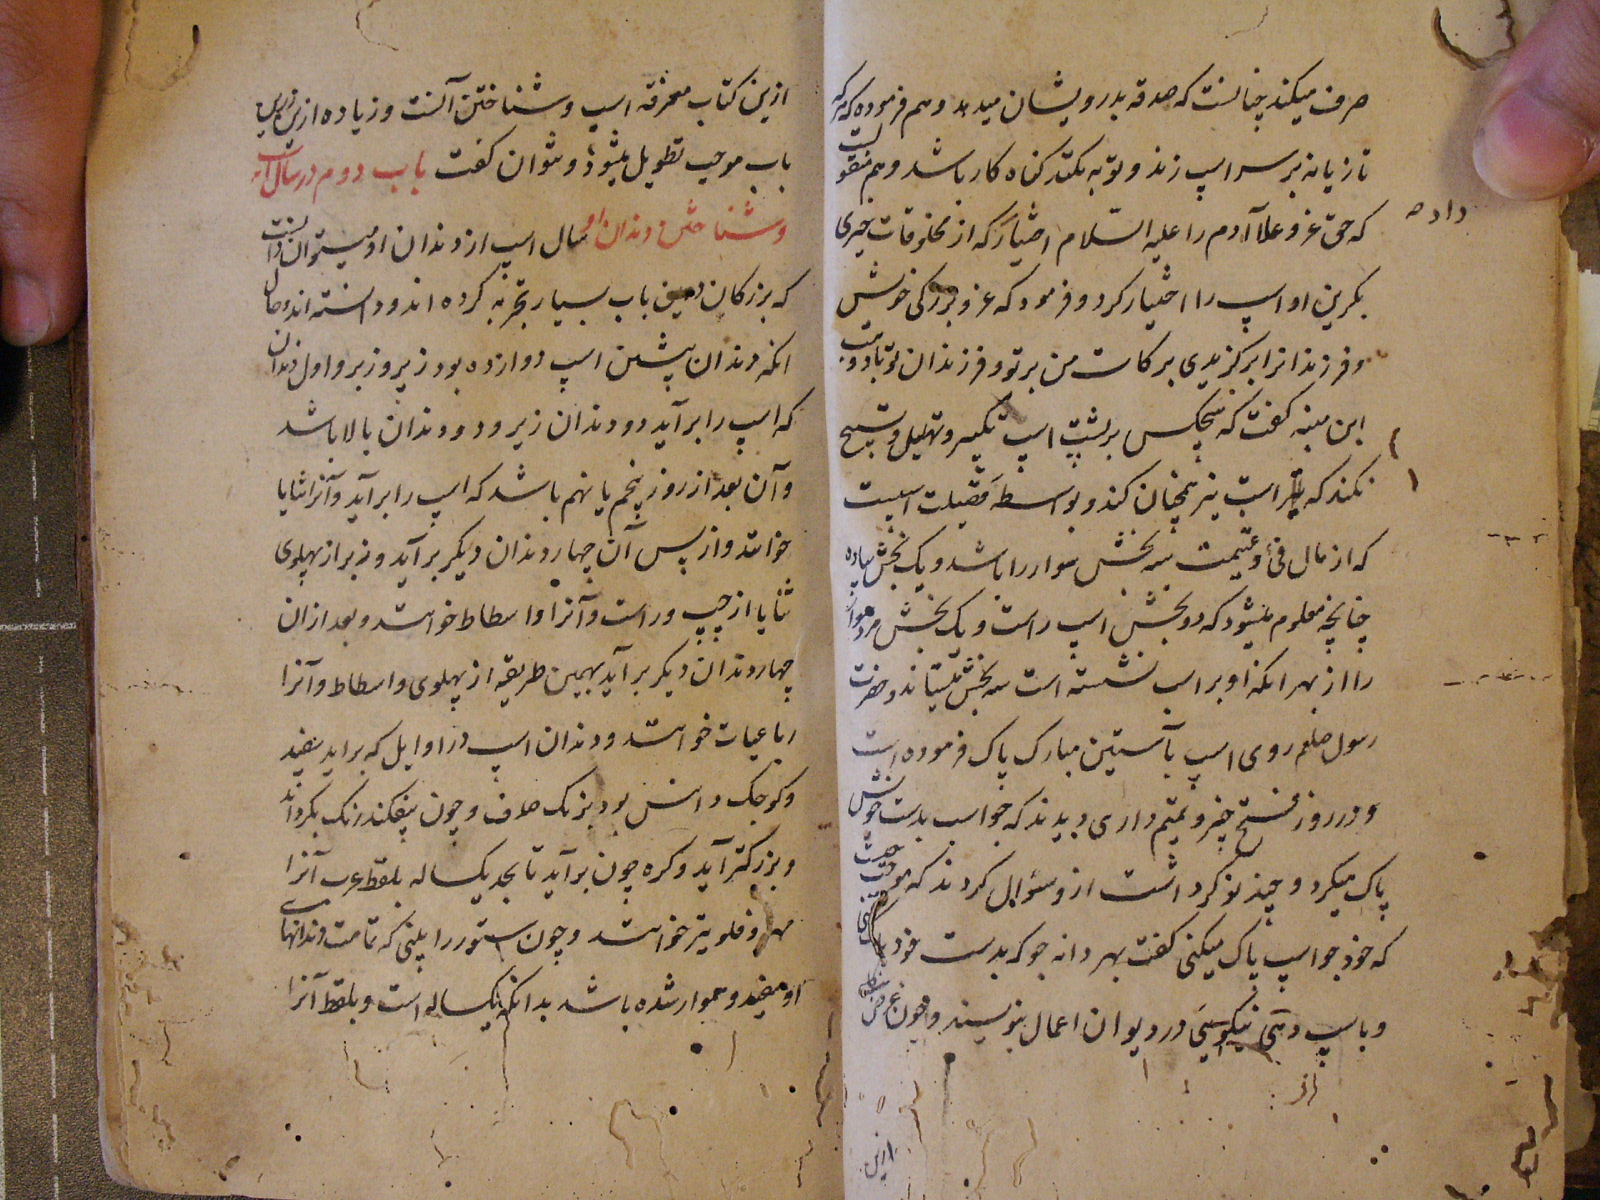 صرف میکند چنانست که صدقه بدرویشان میدهد و هم فرموده که هرکه
تازیانه بر سر اسپ زند و توبه نکند کناه کار باشد و هم منقولست
داده
که حق عز و علا آدم را علیه السلام اختیار که از مخلوقات چیزی
بکزین او اسپ را اختیار کرد و فرمود که عز و بزرکی خویش
و فرزندانرا برکزیدی برکات من بر تو و فرزندان تو باد و
ابن منبه کفت که هیچکس بر پشت اسپ تکبیر و تهلیل و تسبیح
نکند که اسپ نیز همچنان کند و بواسطه فضیلت اسپست
که از مال فئ و غنیمت سه بخش سوار را باشد و یک بخش پیاده
چنانچه معلوم میشود که دو بخش اسپ راست و یک بخش مرد
را از بهر انکه او بر اسپ نشسته است سه بخش میستاند و حضرت
رسول صلعم روی اسپ بآستین مبارک پاک فرموده است
و در روز فتح تمیم داری دیدند که جو اسپ بدست خویش
پاک میکرد و چند نوکر داشت ازو سئوال کردند که
که خود جو اسپ پاک میکنی کفت بهر دانه جو که بدست خود پاک کنی
و باسپ دهی نیکویی در دیوان اعمال بنویسند و چون غرض
ازین
ازین کتاب معرفة اسپ و شناختن آنست و زیاده ازین درین
باب موجب تطویل میشود نتوان کفت باب دوم در سال اسپ
و شناختن دندان او سال اسپ از دندان او میتوان دانست
که بزرکان درین باب بسیار تجربه کرده اند و دانسته اند و حال
انکه دندان پیشین اسپ دوازده بود زیر و زبر و اول دندان
که اسپ را برآید دو دندان زیر و دو دندان بالا باشد
و آن بعد از روز پنجم یا نهم باشد که اسپ را برآید و آنرا ثنایا
خوانند و از پس آن چهار دندان دیکر برآید و زبر از پهلوی
ثنایا از چپ و راست و آنرا واسطاط خوانند و بعد ازان
چهار دندان دیکر برآید بهمین طریقه از پهلوی واسطاط و آنرا
رباعیات خوانند و دندان اسپ در اوایل که براید سفید
و کوچک و املس بود برنک صدف و چون بیفکند رنک بکرداند
و بزرکتر آید و کره چون برآید تا بحد یکساله بلفظ عرب آنرا
مهر و فلو نیز خوانند و چون ستور را بینی که تمامت دندانهای
او سفید و هموار شده باشد بدانکه یکساله است و بلفظ آنرا